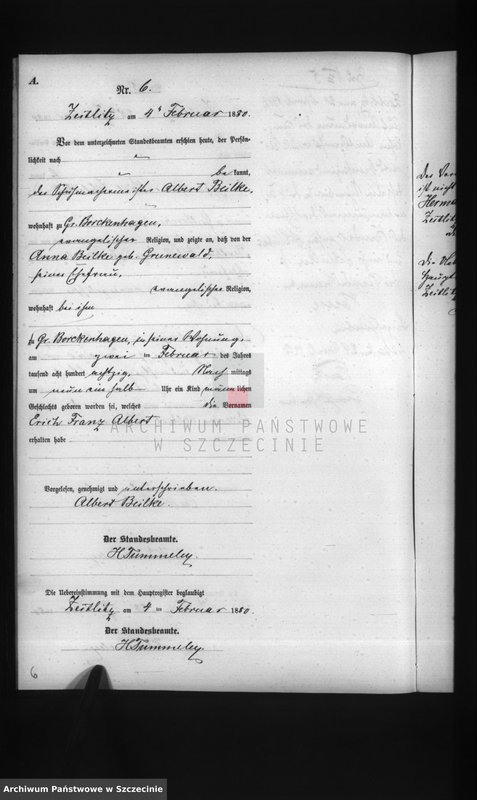 A.
Nr. 6.
Zeitlitz am 4ᵗ Februar 1880.
Vor dem unterzeichneten Standesbeamten erschien heute, der Persön-
lichkeit nach
be kannt,
der Schuhmachermeister Albert Beilke,
wohnhaft zu Gr. Borckenhagen,
evangelischer Religion, und zeigte an, daß von der
Anna Beilke geb. Grunewald,
seiner Ehefrau,
evangelischer Religion,
wohnhaft bei ihm
zu Gr. Borckenhagen, in seiner Wohnung,
am zwei ten Februar des Jahres
tausend acht hundert achtzig, Nach mittags
um neun ein halb Uhr ein Kind männ lichen
Geschlechts geboren worden sei, welches die Vornamen
Erich Franz Albert
erhalten habe
Vorgelesen, genehmigt und unterschrieben.
Albert Beilke.
Der Standesbeamte.
H Tummeley.
Die Uebereinstimmung mit dem Hauptregister beglaubigt
Zeitlitz am 4 ten Februar 1880.
Der Standesbeamte.
H Tummeley.
6
ist nicht
Herma
Zeitlitz
Haupt
Zeitlitz
ARCHIWUM PAŃSTWOWE
W SZCZECINIE
Archiwum Państwowe w Szczecinie